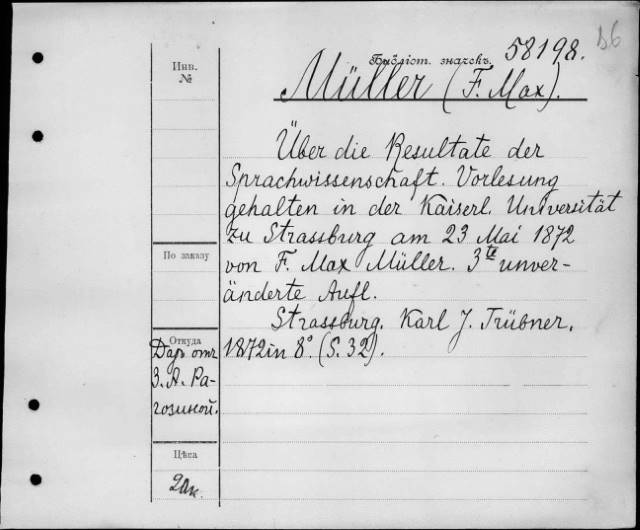 Библіот. значекъ. 58198.
Инв.
№
Müller (F. Max).
Über die Resultate der
Sprachwissenschaft. Vorlesung
gehalten in der Kaiserl. Universität
zu Strassburg am 23 Mai 1872
По заказу
von F. Max Müller. 3te unver-
änderte Aufl.
Strassburg, Karl J. Trübner,
1872 in 8° (S. 32).
Откуда
Даръ отъ
З. А. Ра-
гозиной.
Цѣна